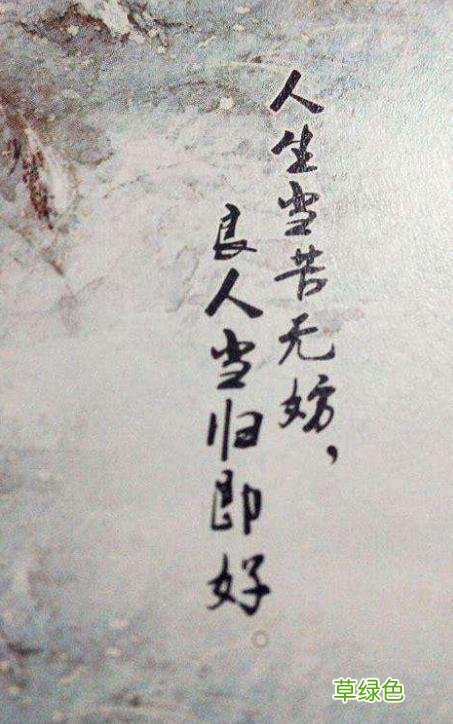 人生当苦无妨，
良人当归即好。
草绿色